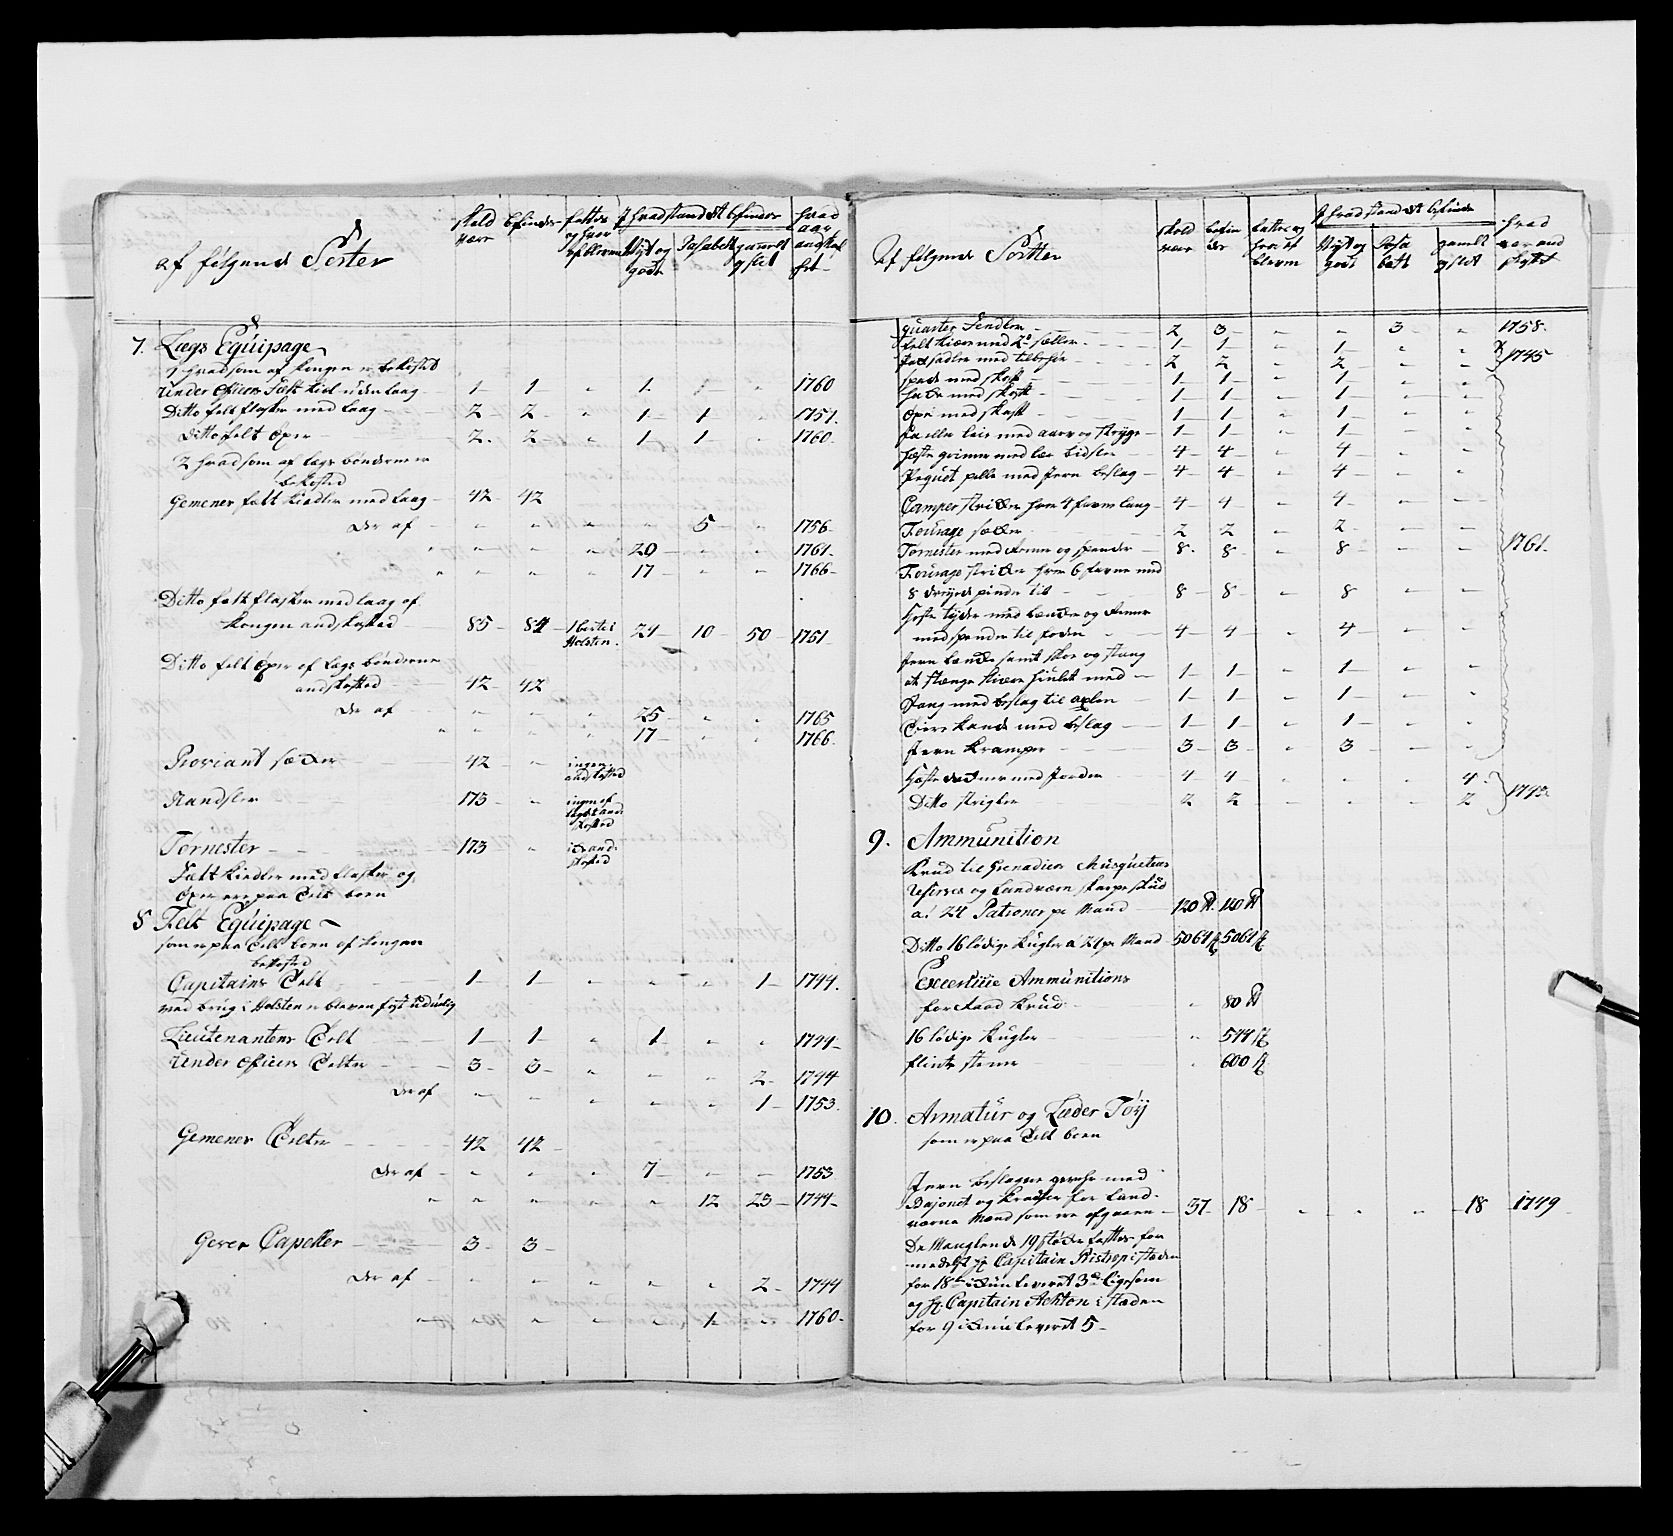 af følgende Sorter | skal være | befindes | fattes og hvor afbleven | J hvad stand det befindes | Nyt og godt | Passabelt | gammelt og slet | hvad aar anskaffet
7. Lægs Equipage
1 hvad som af kongen er bekosted
Under Officers Felt Kiel uden laag 1 1 " 1 " " 1760
Ditto felt flasker med laag 2 2 " 1 1 " 1751.
Ditto felt Øxer 2 2 " 1 1 " 1760
2 hvad som af lægs bønderne er
bekosted
Gemener felt kiedler med laag 42 42
Der af " " " " 5 " 1756
" " " " 20 " " 1761
" " " " 17 " " 1766
Ditto felt flasker med laag af
kongen anskaffed 85 84 1 bortes i Holsten. 24 10 50 1751
Ditto felt Øxer af lægs bønderne
anskaffed 42 42
Der af " " " 25 " " 1765
" " " " 17 " " 1766
Proviant sæcker 42 " ingen anskaffed
Randsler 173 " ingen af slags anskaffed
Tornester 173 " anskaffed
Felt kiedler med flasker og
Øxer ere paa Tellt boen
8 Felt Equipage
som er paa Tellt boen af kongen
bekosted
Capitains Telt 1 1 " " " 1 1744.
ved brug i Holsten er bleven udüelig
Lieutenantens Telt 1 1 " 1 " " 1744
Under Officers Telter 3 3 " " " 2 1744
Der af " " " " " 1 1753
Gemener Telter 42 42
Der af " " " 7 " " 1753
" " " " " 12 23 1744
Gever Capeller 3 3
Der af " " " " " 2 1744
" " " " " 1 " 1760
Af følgende Sortter | skal være | befindes | fattes og hvor af bleven | J hvad stand det befindes | Nyt og godt | Passabelt | gamlt og slet | hvad aar anskaffet
quarter Fendler 2 3 " " 3 " 1758
felt kiærre med 2de sæller 1 1 " 1 " "
Pak sadler med tilbehør 2 2 " 2 " " 1745
spade med skaft 1 1 " 1 " "
hacke med skaft 1 1 " 1 " "
Øxe med skaft 1 1 " 1 " "
med aarv og strøge 1 1 " 1 " "
hæste grimer med lær bidsler 4 4 " 4 " "
Piquet pæller med Jern beslag 4 4 " 4 " "
Camper stricker hver 4 favne lang 4 4 " 4 " "
Fourage sæcker 2 2 " 2 " "
Tornester med Remer og spender 8 8 " 8 " " 1761.
Fourage stricker hver 6 favne med
8 dreyede pinder til 8 8 " 8 " "
heste tøyder med lencker og Remer
med spender til foden 4 4 " 4 " "
Jern lencke samt skoe og stang
at stænge kiærre hiulet med 1 1 " 1 " "
Tang med beslag til axlen 1 1 " 1 " "
Tiere kande med beslag 1 1 " 1 " "
Jern kramper 3 3 " 3 " "
Heste deckener med Jorder 4 4 " " " 4
Ditto strigler 2 2 " " " 2 1745
9. Ammünition
Krud til Grenadier Musqueteer
Reserves og Landværn skarpe skud
a: 24 Patroner pr Mand 120 ℔ 120 ℔
Ditto 16 lødige kugler a 24 pr Mand 5064 st 5064 st
Excersitie Ammunitions
for Aaed Krud " 80 ℔
16 lødige Kugler " 544 st
flinte stene " 600 st
10. Armatür og Læder Tøÿ
som er paa Telt boen
Jern beslagne gevehr med
Bajonet og kradser for Land-
værns Mænd som ere afgaaen 37 18 " " " 18 1749
De Manglende 19 støcke fattes for
medelst hr Capitain Bistrop i steden
for 18 ickun leveret 3de ligesom
og hr Capitain Achton i stæden
for 9 ickun leveret 5